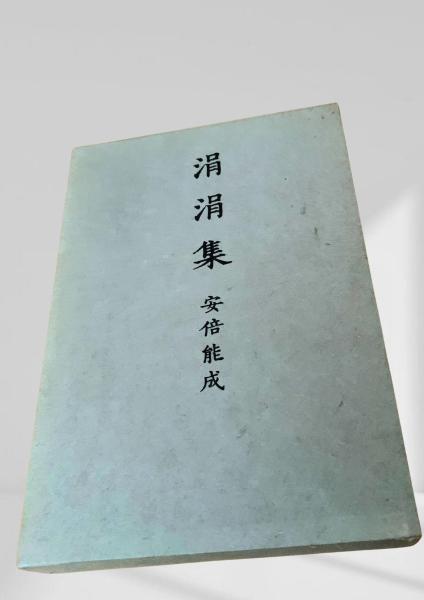 涓涓集
安倍能成